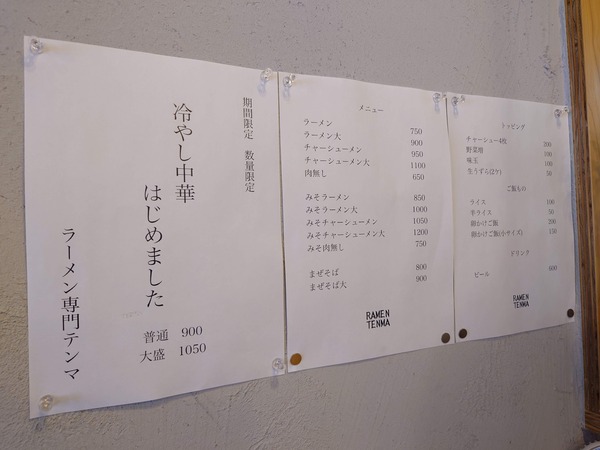 期間限定 数量限定
冷やし中華
はじめました
ラーメン専門テンマ
普通 900
大盛 1050
メニュー
ラーメン 750
ラーメン大 900
チャーシューメン 950
チャーシューメン大 1100
肉無し 650
みそラーメン 850
みそラーメン大 1000
みそチャーシューメン 1050
みそチャーシューメン大 1200
みそ肉無し 750
まぜそば 800
まぜそば大 900
RAMEN
TENMA
トッピング
チャーシュー4枚
野菜増
味玉 100
生うずら(2ケ) 50
ご飯もの
ライス 100
半ライス 50
卵かけご飯 200
卵かけご飯(小サイズ) 150
ドリンク
ビール
RAMEN
TENMA